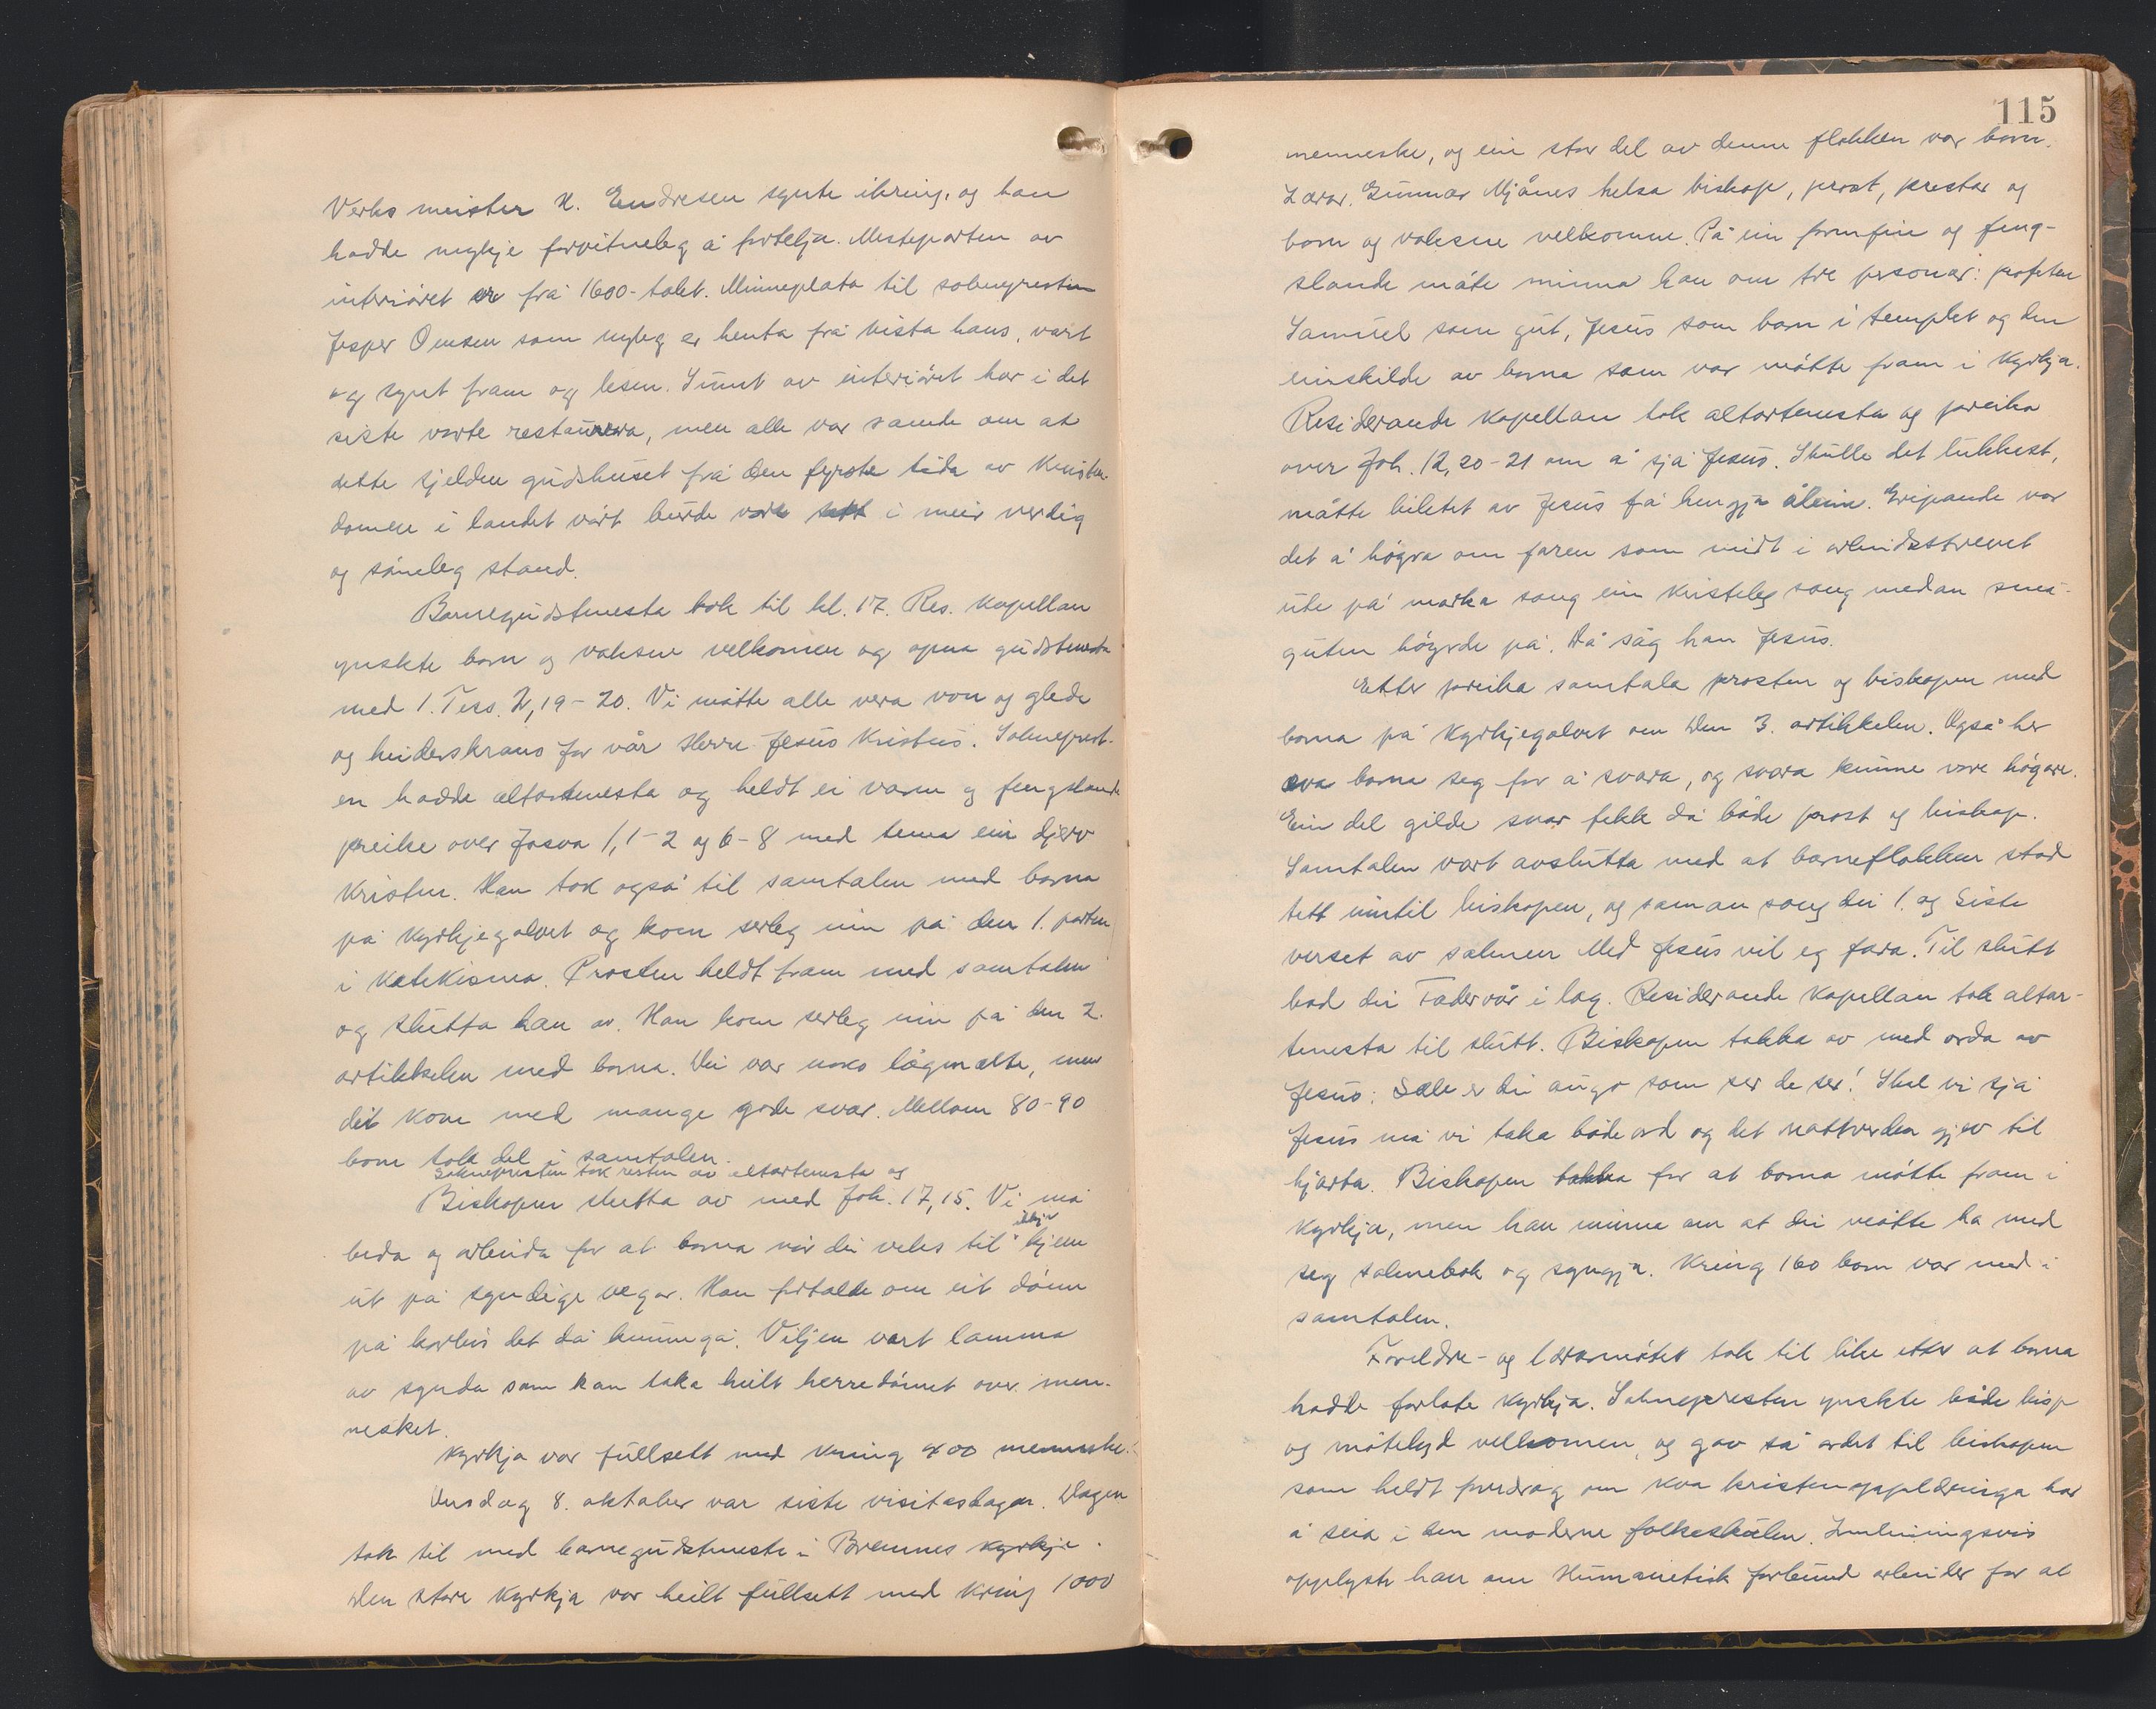 Verksmeister H. Endresen synte ikring, og han
hadde mykje forvitneleg å fortelja. Mesteparten av
interiøret er frå 1600-talet. Minneplata til soknepresten
Jesper Omsen som nyleg er henta frå kista hans, vart
og synt fram og lesen. Sumt av interiøret har i det
siste vorte restaurera, men alle var samde om at
dette sjeldne gudshuset frå den fyrste tida av kristen-
domen i landet vårt burde vore sett i meir verdig
og sømeleg stand.
Barnegudstenesta tok til kl. 17. Res. kapellan
ynskte born og vaksne velkomen og opna gudstenesta
med 1. Tess. 2, 19-20. Vi måtte alle vera von og glede
og heiderskrans for vår Herre Jesus Kristus. Sokneprest-
en hadde altartenesta og heldt ei varm og fengslande
preike over Josva 1, 1-2 og 6-8 med tema ein djerv
kristen. Han tok også til samtalen med borna
på kyrkjegolvet og kom serleg inn på den 1. parten
i katekisma. Prosten heldt fram med samtalen
og slutta han av. Han kom serleg inn på den 2.
artikkelen med borna. Dei var noko lågmælte, men
det kom med mange gode svar. Mellom 80-90
born tok del i samtalen.
Soknepresten tok resten av altartenesta og
Biskopen slutta av med Joh. 17, 15. Vi må
ikkje
beda og arbeida for at borna når dei veks til kjem
ut på syndige vegar. Han fortalde om eit døme
på korleis det då kunne gå. Viljen vart lamma
av synda som kan taka heilt herredømet over men-
nesket.
Kyrkja var fullsett med kring 400 menneske.
Onsdag 8. oktober var siste visitasdagen. Dagen
tok til med barnegudsteneste i Bremnes kyrkje.
Den store kyrkja var heilt fullsett med kring 1000
115
menneske, og ein stor del av denne flokken var born.
Lærar Gunnar Mjånes helsa biskop, prost, prestar og
born og vaksne velkomne. På ein formfin og feng-
slande måte minna han om tre personar: profeten
Samuel som gut, Jesus som barn i templet og den
einskilde av borna som var møtte fram i kyrkja.
Residerande kapellan tok altartenesta og preika
over Joh. 12, 20-21 om å sjå Jesus. Skulle det lukkast,
måtte biletet av Jesus få hengja åleine. Gripande var
det å høyra om faren som midt i arbeidsstrevet
ute på marka song ein kristeleg song medan små-
guten høyrde på. Då såg han Jesus.
Etter preika samtala prosten og biskopen med
borna på kyrkjegolvet om den 3. artikkelen. Også her
ova borna seg for å svara, og svara kunne vore høgare.
Ein del gilde svar fekk då både prost og biskop.
Samtalen vart avslutta med at barneflokken stod
tett inntil biskopen, og saman song dei 1. og siste
verset av salmen Med Jesus vil eg fara. Til slutt
bad dei Fadervår i lag. Residerande kapellan tok altar-
tenesta til slutt. Biskopen takka av med orda av
Jesus: Sæle er dei augo som ser de ser! Skal vi sjå
Jesus må vi taka både ord og det nattverden gjev til
hjarta. Biskopen takka for at borna møtte fram i
kyrkja, men han minna om at dei måtte ha med
seg salmebok og syngja. Kring 160 born var med i
samtalen.
Foreldre- og lærarmøtet tok til like etter at borna
hadde forlate kyrkja. Soknepresten ynskte både bisp
og møtelyd velkomen, og gav så ordet til biskopen
som heldt foredrag om kva kristenopplæringa har
å seia i den moderne folkeskulen. Innleiingsvis
opplyste han om Humanetisk forbund arbeider for at